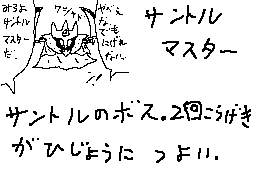 みろよ
サントル
マスター
だ.
ワシャ
やべえ
な.
でも
にげれ
ない.
!!
サントル
マスター
サントルのボス.2回こうげき
がひじょうに つよい.